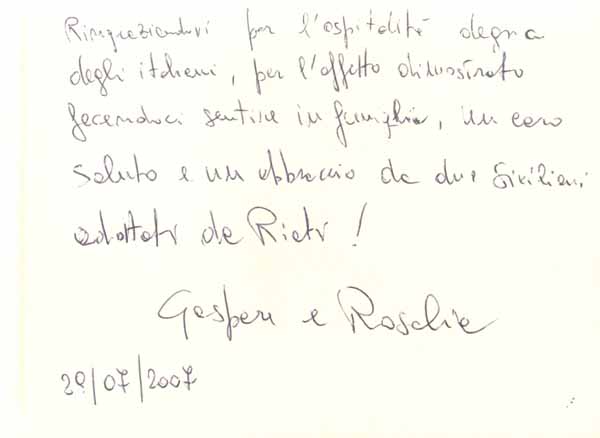 Ringraziandovi per l'ospitalità degna
degli italiani, per l'affetto dimostrato
facendoci sentire in famiglia, un caro
saluto e un abbraccio da due Siciliani
adottati da Rieti!
Gaspare e Rosalia
29/07/2007